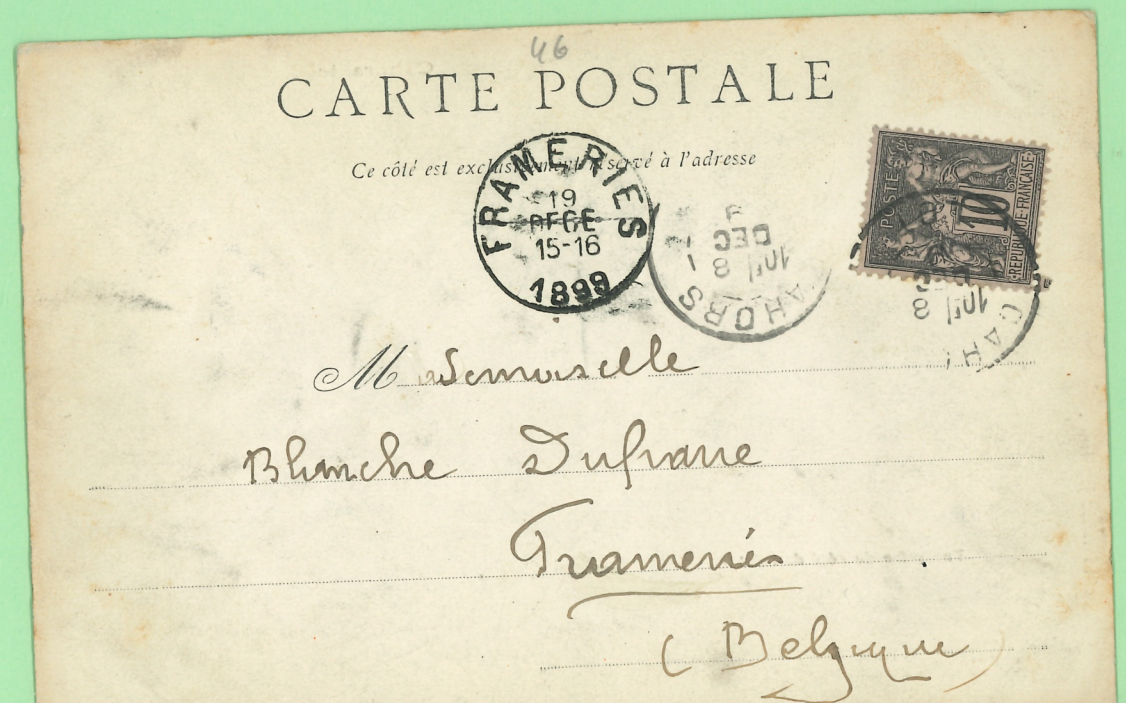 46
CARTE POSTALE
Ce côté est exclusivement réservé à l'adresse
FRAMERIES
19
DECE
15-16
1899
CAHORS
10E/ 8
DEC
POSTES
10
REPUBLIQUE FRANÇAISE
10E/ 8
CAH
Mademoiselle
Blanche Dufrane
Frameries
(Belgique)